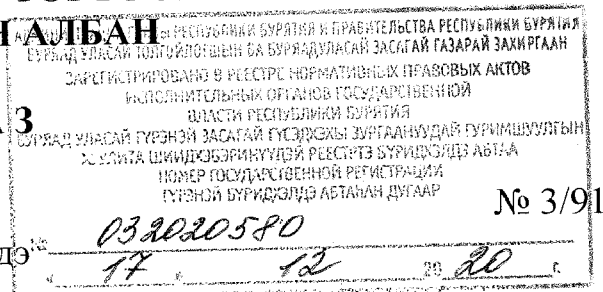 АЛБАН
РЕСПУБЛИКИ БУРЯТИЯ И ПРАВИТЕЛЬСТВА РЕСПУБЛИКИ БУРЯТИЯ
БУРЯАД УЛАСАЙ ТОЛГОЙЛОГШЫН БА БУРЯАДУЛАСАЙ ЗАСАГАЙ ГАЗАРАЙ ЗАХИРГААН
ЗАРЕГИСТРИРОВАНО В РЕЕСТРЕ НОРМАТИВНЫХ ПРАВОВЫХ АКТОВ
ИСПОЛНИТЕЛЬНЫХ ОРГАНОВ ГОСУДАРСТВЕННОЙ
ВЛАСТИ РЕСПУБЛИКИ БУРЯТИЯ
З
БУРЯАД УЛАСАЙ ГҮРЭНЭЙ ЗАСАГАЙ ГҮЙСЭДХЭХЫ ЗУРГААНУУДАЙ ГУРИМШУУЛГЫН
РЕЕСТРТЭ БҮРИДХЭЛДЭ АБТАА
НОМЕР ГОСУДАРСТВЕННОЙ РЕГИСТРАЦИИ
ГҮРЭНЭЙ БҮРИДХЭЛДЭ АБТАҺАН ДУГААР
№ 3/91
№ 032020580
дэ
« 17 » 12 20 20 г.